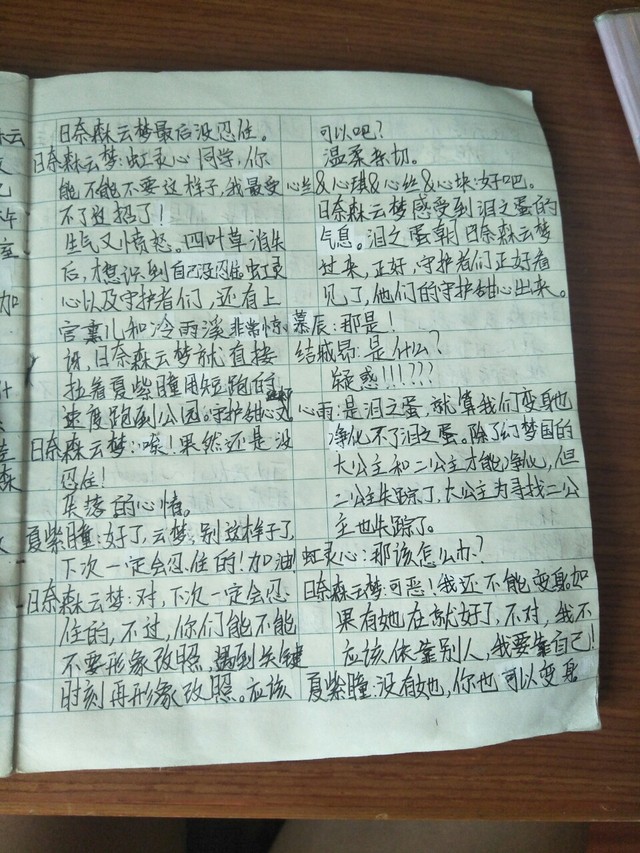 日奈森云梦最后没忍住。
日奈森云梦:虹灵心同学,你
能不能不要这样子,我最受
不了这招了!
生气又愤怒。四叶草消失
后,才想识到自己没忍住虹灵
心以及守护者们,还有上
官熏儿和冷雨溪非常惊
讶,日奈森云梦就直接
拉着夏紫瞳用短跑的
速度跑到公园。守护甜心
日奈森云梦:唉!果然还是没
忍住!
失落的心情。
夏紫瞳:好了,云梦,别这样子了,
下次一定会忍住的!加油
日奈森云梦:对,下次一定会忍
住的,不过,你们能不能
不要形象改照,遇到关键
时刻再形象改照。应该
可以吧?
温柔亲切。
心丝&心琪&心丝&心块:好吧。
日奈森云梦感受到泪之蛋的
气息。泪之蛋朝日奈森云梦
过来,正好,守护者们正好看
见了,他们的守护甜心出来。
慕辰:那是!
结城昂:是什么?
疑惑!!!???
心雨:是泪之蛋,就算我们变身也
净化不了泪之蛋。除了幻梦国的
大公主和二公主才能净化,但
二公主失踪了,大公主为寻找二公
主也失踪了。
虹灵心:那该怎么办?
日奈森云梦:可恶!我还不能变身。如
果有她在就好了,不对,我不
应该依靠别人,我要靠自己!
夏紫瞳:没有她,你也可以变身